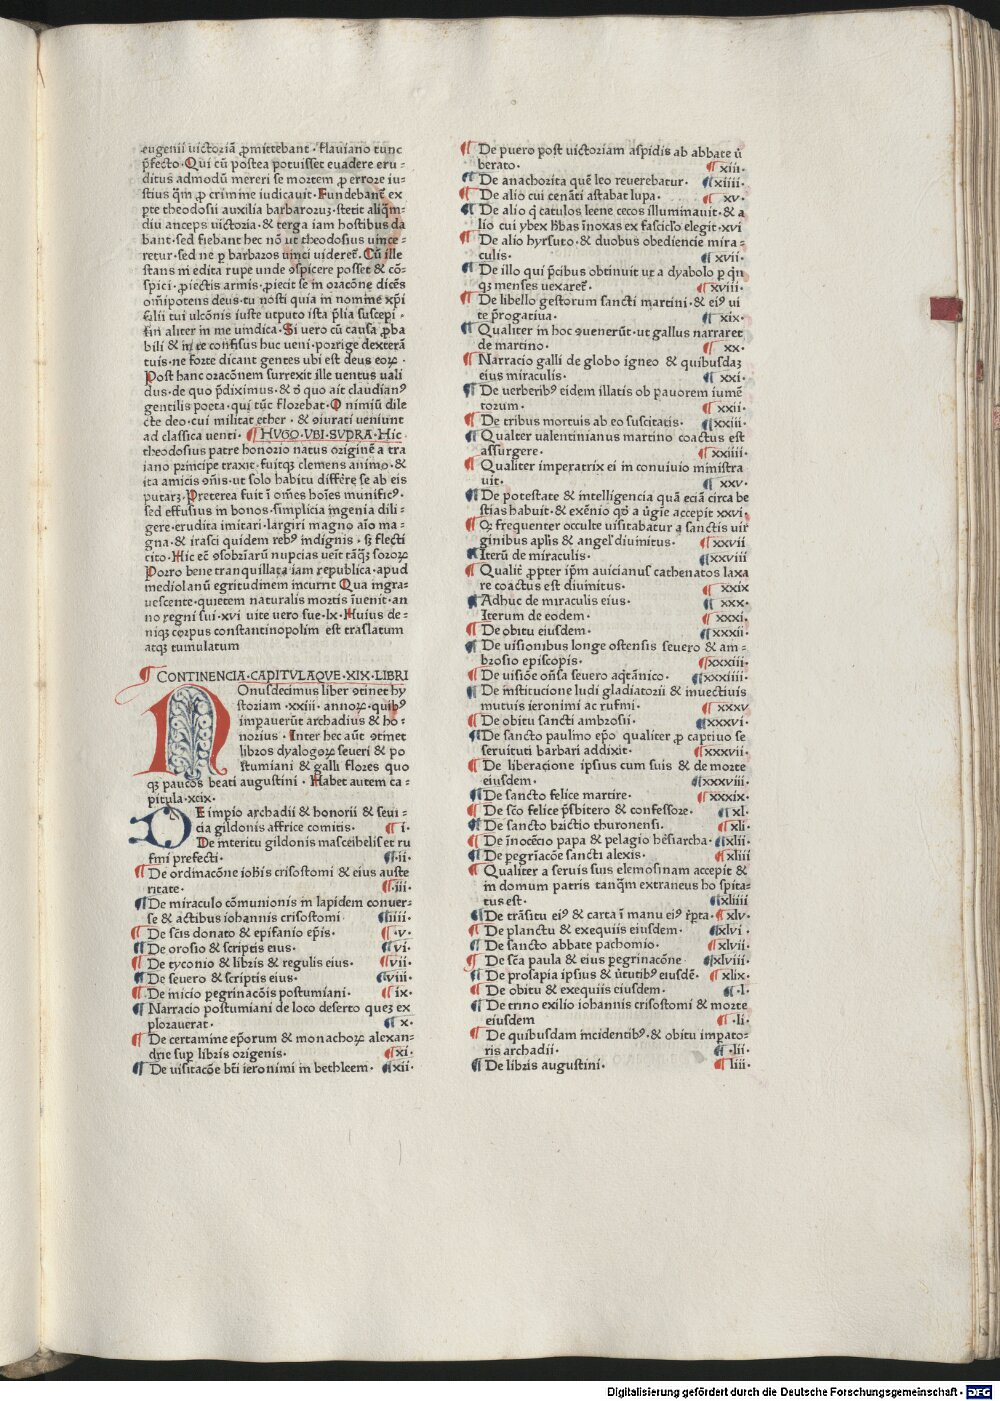 eugenii uictoriã ꝓmittebant · flauiano tunc
p̃fecto · Qui cũ postea potuisset euadere eru⸗
ditus admodũ mereri se mortem ꝓ errore iu⸗
stius q̃m ꝓ crimine iudicauit · Fundebant̃ ex
pte theodosii auxilia barbaroruꝫ · stetit aliq̃m⸗
diu anceps uictoria · & terga iam hostibus da
bant · sed fiebant hec nõ ut theodosius uince⸗
retur · sed ne p barbaros uinci uideret̃ · Cũ ille
stans in edita rupe unde ꝯspicere posset & cõ⸗
spici · ꝓiectis armis · piecit se in oracõne dicẽs
om̃ipotens deus · tu nosti quia in nomine xp̃i
filii tui ulcõnis iuste utputo ista p̃lia suscepi ·
sin aliter in me uindica · Si uero cũ causa ꝓba
bili & in te confisus huc ueni · porrige dexterã
tuis · ne forte dicant gentes ubi est deus eoꝝ ·
Post hanc oracõnem surrexit ille uentus uali
dus · de quo p̃diximus · & õ quo ait claudianꝰ
gentilis poeta · qui tũc florebat · O nimiũ dile
cte deo · cui militat ether · & ꝯiurati ueniunt
ad classica uenti · HVGO · VBI · SVPRA · Hic
theodosius patre honorio natus origine᷃ a tra
iano principe traxit · fuitqꝫ clemens animo · &
ita amicis ꝯ̃nis · ut solo habitu differ̃e se ab eis
putarꝫ · Preterea fuit ĩ om̃es hoĩes munificꝰ ·
sed effusius in bonos · simplicia ingenia dili⸗
gere · erudita imitari · largiri magno aĩo ma⸗
gna · & irasci quidem rebꝰ indignis · sꝫ flecti
cito · Hic ec̃ ꝯsobrĩarũ nupcias ueĩt tãqꝫ soroꝝ
Porro bene tranquillata iam republica · apud
mediolanũ egritudinem incurrit Qua ingra⸗
uescente · quietem naturalis mortis ĩuenit · an
no regni sui · xvi uite uero sue · lx · Huius de⸗
niqꝫ corpus constantinopolim est traslatum
atqꝫ tumulatum
CONTINENCIA · CAPITVLAQVE · XIX · LIBRI
NOnusdecimus liber ꝯtinet hy
storiam · xxiii · annoꝝ · quibꝰ
imperauer̃ut archadius & ho⸗
norius · Inter hec aũt ꝯtinet
libros dyalogoꝝ seueri & po
stumiani & galli flores quo
qꝫ paucos beati augustini · Habet autem ca⸗
pitula · xcix ·
DE impio archadii & honorii & seui⸗
cia gildonis affrice comitis · i ·
De interitu gildonis mascelhelis et ru
fini prefecti · ii ·
De ordinacõne ioh̃is crisostomi & eius auste
ritate · iii ·
De miraculo cõmunionis in lapidem conuer⸗
se & actibus iohannis crisostomi iiii ·
De sc̃is donato & epifanio ep̃is · v ·
De orosio & scriptis eius · vi ·
De tyconio & libris & regulis eius · vii ·
De seuero & scriptis eius · viii ·
De inicio pegrinacõis postumiani · ix ·
Narracio postumiani de loco deserto queꝫ ex
plorauerat · x ·
De certamine ep̃orum & monachoꝝ alexan⸗
drie sup libris origenis · xi ·
De uisitacõe bt̃i ieronimi in bethleem · xii ·
De puero post uictoriam aspidis ab abbate ũ
berato · xiii ·
De anachorita quẽ leo reuerebatur · xiiii ·
De alio cui cenãti astabat lupa · xv ·
De alio q̇ catulos leene cecos illuminauit · & a
lio cui ybex h̃bas ĩnoxas ex fasciclo elegit · xvi
De alio hyrsuto · & duobus obediencie mira⸗
culis · xvii ·
De illo qui p̃cibus obtinuit ut a dyabolo p q̇n
qꝫ menses uexaret̃ · xviii ·
De libello gestorum sancti martini · & eiꝰ ui
te p̃rogatiua · xix ·
Qualiter in hoc ꝯuenerũt · ut gallus narraret
de martino · xx ·
Narracio galli de globo igneo & quibusdaꝫ
eius miraculis · xxi ·
De uerberibꝰ eidem illatis ob pauorem iumẽ
torum · xxii ·
De tribus mortuis ab eo suscitatis · xxiii ·
Qualiter ualentinianus martino coactus est
assurgere · xxiiii ·
Qualiter imperatrix ei in conuiuio ministra
uit · xxv ·
De potestate & intelligencia quã eciã circa be
stias habuit · & exẽnio qd̃ a ũgine accepit xxvi ·
Q frequenter occulte uisitabatur a sanctis uir
ginibus aplis & angel̃ diuinitus · xxvii
Iterũ de miraculis · xxviii
Qualit̃ ꝓpter ip̃m auicianus cathenatos laxa
re coactus est diuinitus · xxix
Adhuc de miraculis eius · xxx ·
Iterum de eodem · xxxi ·
De obitu eiusdem · xxxii ·
De uisionibus longe ostensis seuero & am⸗
brosio episcopis · xxxiii ·
De uisiõe oñsa seuero aq̃tãnico · xxxiiii ·
De institucione ludi gladiatorii & inuectiuis
mutuis ieronimi ac rufini · xxxv
De obitu sancti ambrosii · xxxvi ·
De sancto paulino ep̃o qualiter ꝓ captiuo se
seruituti barbari addixit · xxxvii ·
De liberacione ipsius cum suis & de morte
eiusdem · xxxviii ·
De sancto felice martire · xxxix ·
De sc̃o felice p̃sbitero & confessore · xl ·
De sancto brictio thuronensi · xli ·
De ĩnocẽcio papa & pelagio h̃esiarcha · xlii ·
De pegrĩacõe sancti alexis · xliii
Qualiter a seruis suis elemosinam accepit &
in domum patris tanq̃m extraneus hospita⸗
tus est · xliiii
De trãsitu eiꝰ & carta ĩ manu eiꝰ r̃pta · xlv ·
De planctu & exequiis eiusdem · xlvi ·
De sancto abbate pachomio · xlvii ·
De sc̃a paula & eius pegrinacõne · xlviii ·
De prosapia ipsius & ũtutibꝰ eiusdẽ · xlix ·
De obitu & exequiis eiusdem · l ·
De trino exilio iohannis crisostomi & morte
eiusdem · li ·
De quibusdam incidentibꝰ · & obitu impato⸗
ris archadii · lii ·
De libris augustini · liii ·
Digitalisierung gefördert durch die Deutsche Forschungsgemeinschaft - DFG